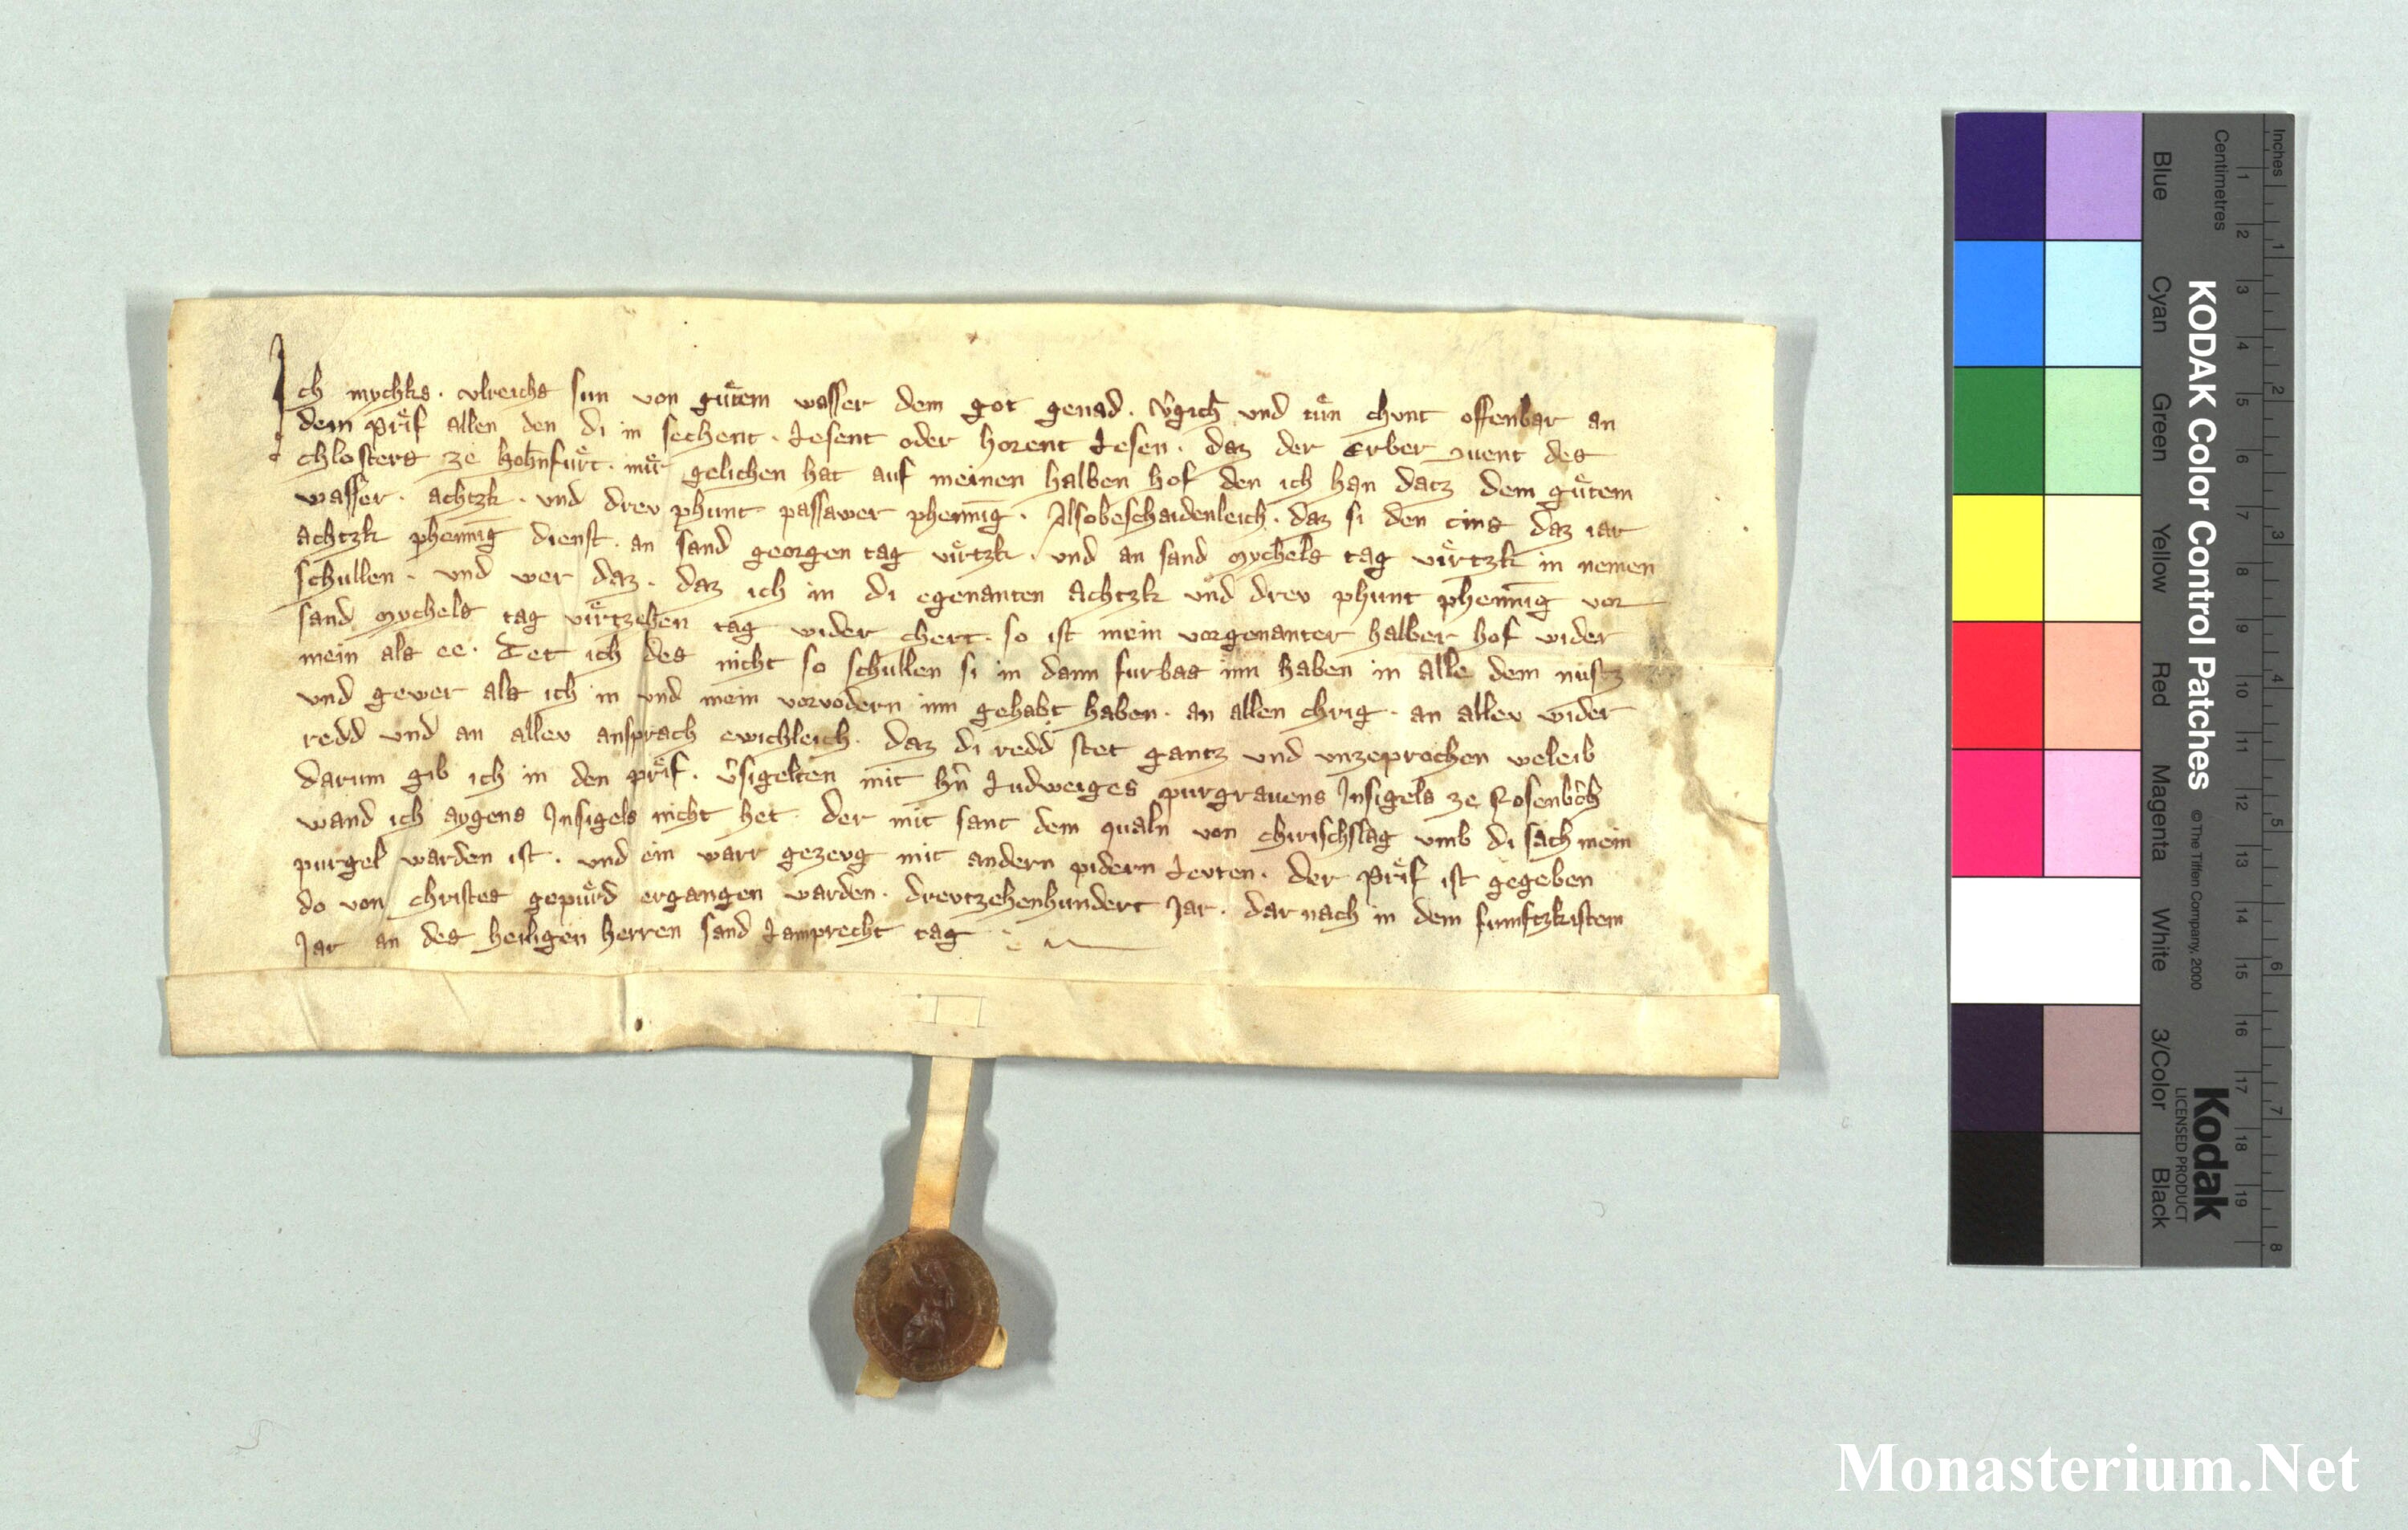 Ich mychks · vlreichs sun von guͤtem wasser dem got genad · v̂gich und tuͤn chunt offenbar an
dem priͤf allen den di in sechent · Lesent oder horent Lesen · daz der Erber ɔuent des
chlosters ze hoh̄nfuͤrt · miͤr gelichen hat auf meinen halben hof den ich han datz dem guͤtem
wasser · achtzk · und drev phunt passawer phenni̅g · Alsobeschaidenleich · daz si den cins daz iar
achtzk phenni̅g dienst · an sand georgen tag viͤrtzk · und an sand mychels tag viͤrtzk in nemen
schullen · und wer daz · daz ich in di egenanten Achtzk und drev phunt phenni̅g vor
sand mychels tag viͤrtzehen tag wider chert · so ist mein vorgenanter halber hof wider
mein als ee · Tet ich des nicht so schullen si in dann furbas inn haben in alle dem nustz
und gewer als ich in und mein vorvodern inn gehabt haben · an allen chrig · an allev wider
redd und an allev ansprach ewichleich · daz di redd stet gantz und unzeprochen weleib
darum gib ich in den priͤf · v̂sigelten mit hn̂ Ludweiges purgrauens Insigels ze Rosenbcĥ
wand ich aygens Insigels nicht het · der mit sant dem qualn von chirischslag umb di sach mein
purgel warden ist · und ein warr gezevg mit andern pidern Levten · der priͤf ist gegeben
do von christes gepuͤrd ergangen warden · drevtzehenhundert Jar · dar nach in dem fumftzkistem
Jar an des heiligen herren sand Lamprecht tag
Inches
Centimetres
KODAK Color Control Patches
© The Tiffen Company, 2000
Kodak
LICENSED PRODUCT
Blue
Cyan
Green
Yellow
Red
Magenta
White
3/Color
Black
1 2 3 4 5 6 7 8 9 10 11 12 13 14 15 16 17 18 19
1 2 3 4 5 6 7 8
Monasterium.Net